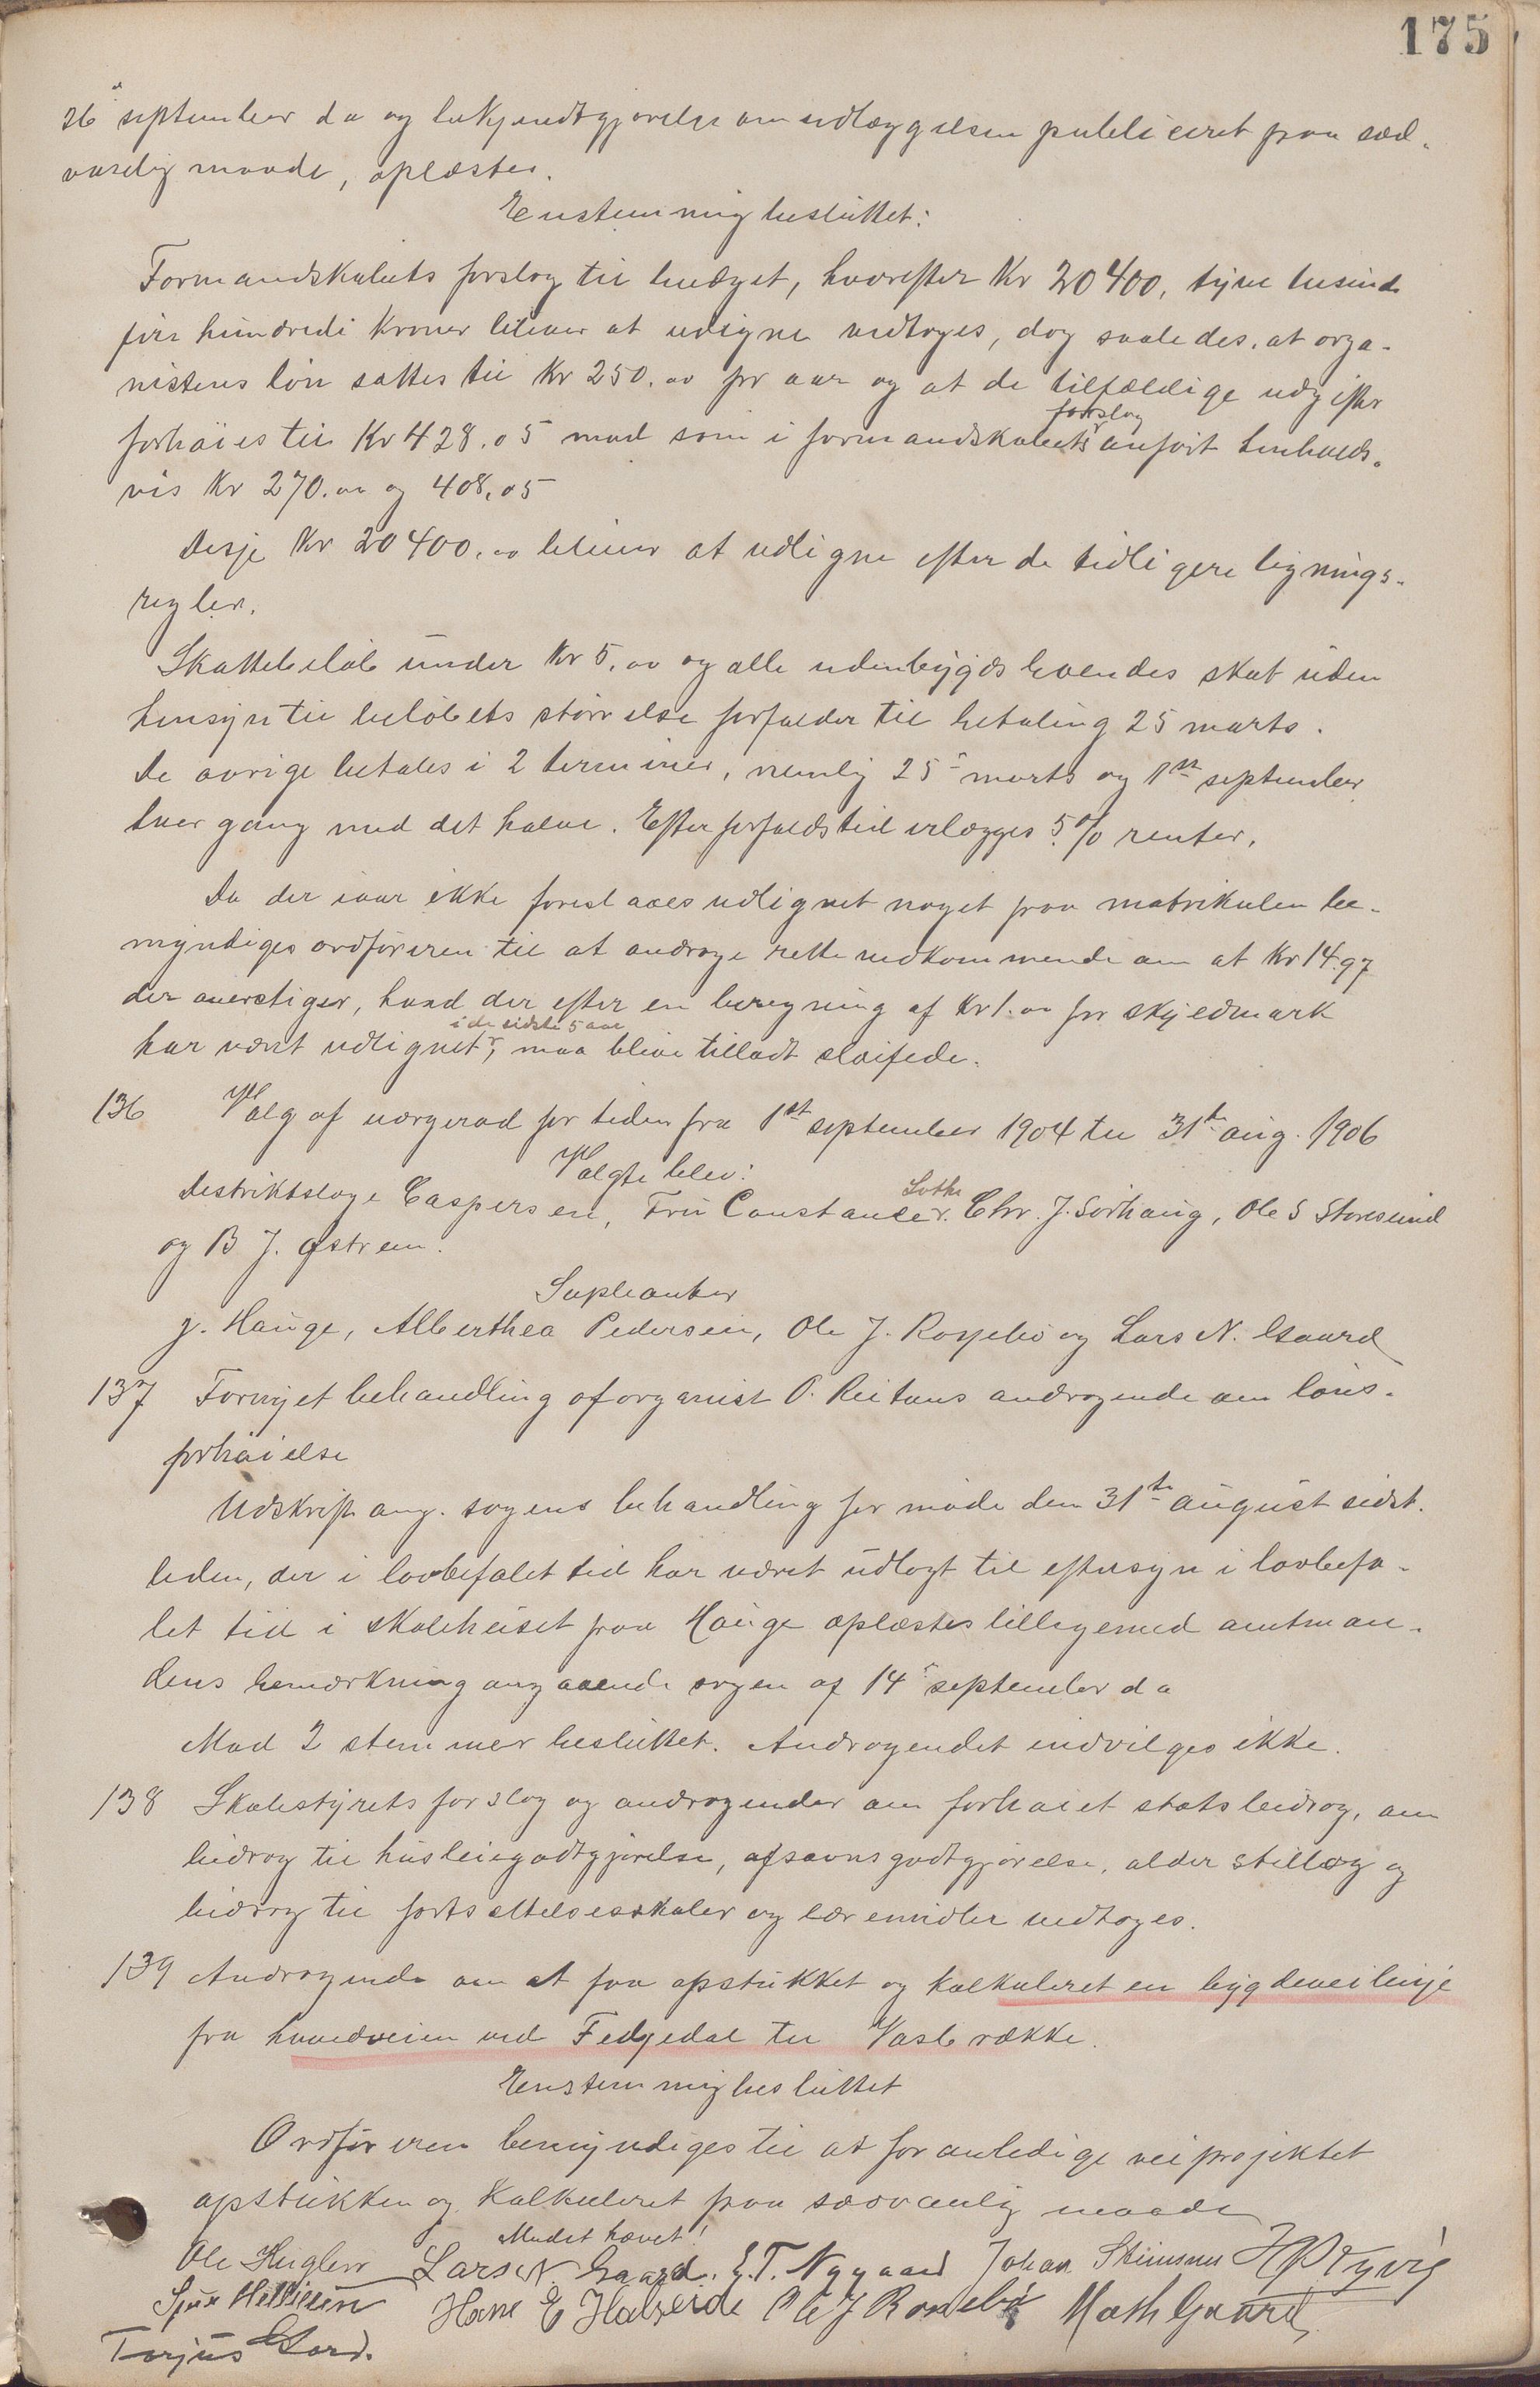 175
26 september d a og bekjendtgjørelse om udlæggelsen publiceret paa sæd-
vanlig maade, oplæstes.
Enstemmig besluttet:
Formandskabets forslag til budget, hvorefter Kr 20400, tyve tusinde
fire hundrede Kroner bliver at udligne vedtoges, dog saaledes, at orga-
nistens løn sattes til Kr 250.00 pr aar og at de tilfældige udgifter
forhøies til Kr 428.05 mod som i formandskabets forslag anført henholds-
vis Kr 270.00 og 408.05
Disse Kr 20400.00 bliver at udligne efter de tidligere lignings-
regler.
Skattebeløb under Kr 5.00 og alle udenbygds boendes skat uden
hensyn til beløbets størrelse forfalder til betaling 25 marts.
De øvrige betales i 2 terminer, nemlig 25 marts og 1ste september
hver gang med det halve. Efter forfaldstid erlægges 5% renter.
Da der iaar ikke foreslaaes udlignet noget paa matrikulen be-
myndiges ordføreren til at andrage rette vedkommende om at Kr 14.97
der overstiger, hvad der efter en beregning af Kr 1.00 pr skyldmark
har været udlignet i de sidste 5 aar, maa blive tilladt sløifede.
136 Valg af værgerad for tiden fra 1st september 1904 til 31te aug. 1906
Valgte blev:
Distriktslæge Caspersen, Fru Constance Lothe Chr. J. Sørhaug, Ole S Storesund
og B J. Østrem.
Supleanter
J. Hauge, Alberthea Pedersen, Ole J. Røsebø og Lars N. Gaard
137 Fornyet behandling af organist O. Reitans andragende om løns-
forhøielse
Udskrift ang. sagens behandling for møde den 31te august sidst-
leden, der i lovbefalet tid har været udlagt til eftersyn i lovbefa-
let tid i skolehuset paa Hauge oplæstes tilligemed amtman-
dens bemærkning angaaende sagen af 14 september d a
Mod 2 stemmer besluttet. Andragendet indvilges ikke.
138 Skolestyrets forslag og andragender om forhøiet statsbidrag, om
bidrag til husleiegodtgjørelse, afsavnsgodtgjørelse, alderstillæg og
bidrag til fortsættelsesskoler og læremidler vedtoges.
139 Andragende om at faa opstukket og kalkuleret en bygdeveilinje
fra hovedveien ved Fedjedal til Vasbrække.
Enstemmig besluttet
Ordføreren bemyndiges til at foranledige veiprojektet
opstukken og kalkuleret paa sædvanlig maade
Mødet hævet!
Ole Lars N Gaard. E.T. Nygaard Johan
Hans E Ole J Røsebø Math Gaard
Torjus Gard.